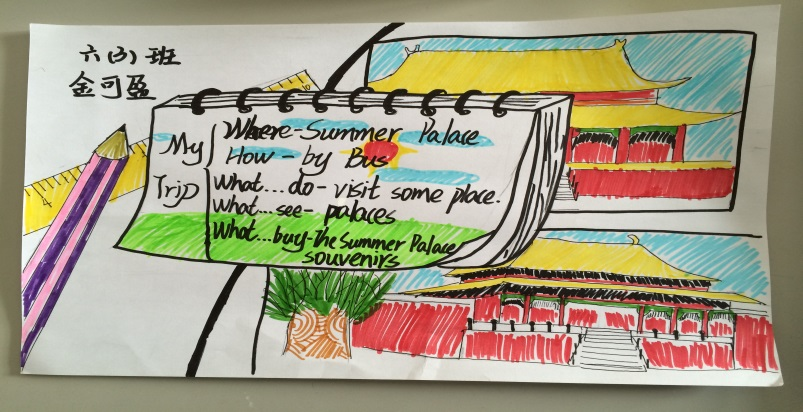 六(3)班
金可盈
My Trip
Where-Summer Palace
How - by Bus
What...do- visit some place.
What...see- palaces
What...buy-The Summer Palace
souvenirs